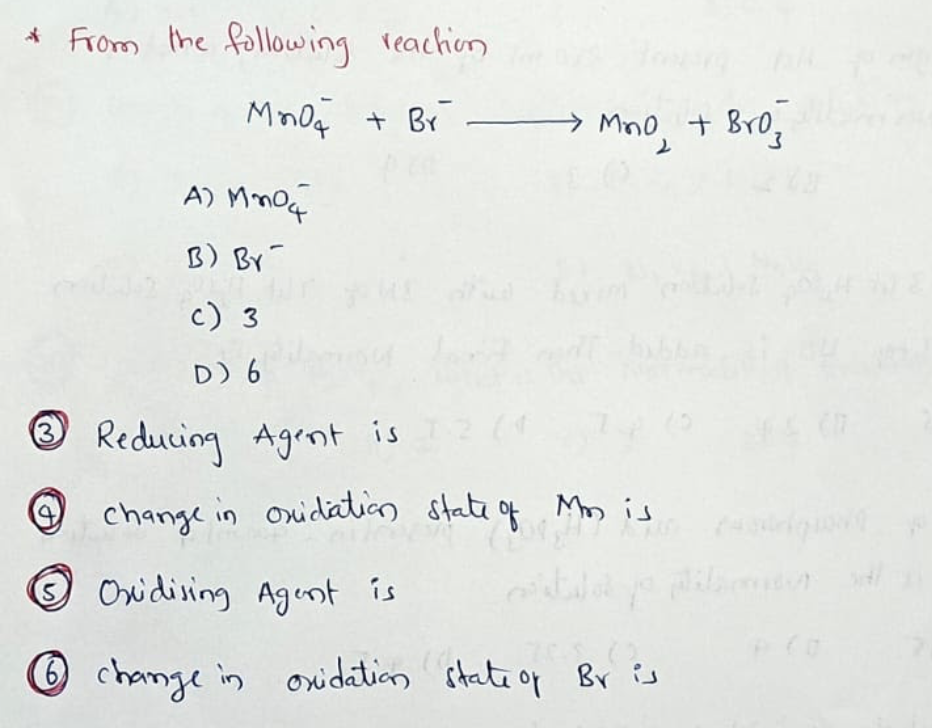 * From the following reaction
MnO₄⁻ + Br⁻ ⟶ MnO₂ + BrO₃⁻
A) MnO₄⁻
B) Br⁻
C) 3
D) 6
③ Reducing Agent is
④ change in oxidation state of Mn is
⑤ Oxidising Agent is
⑥ change in oxidation state of Br is